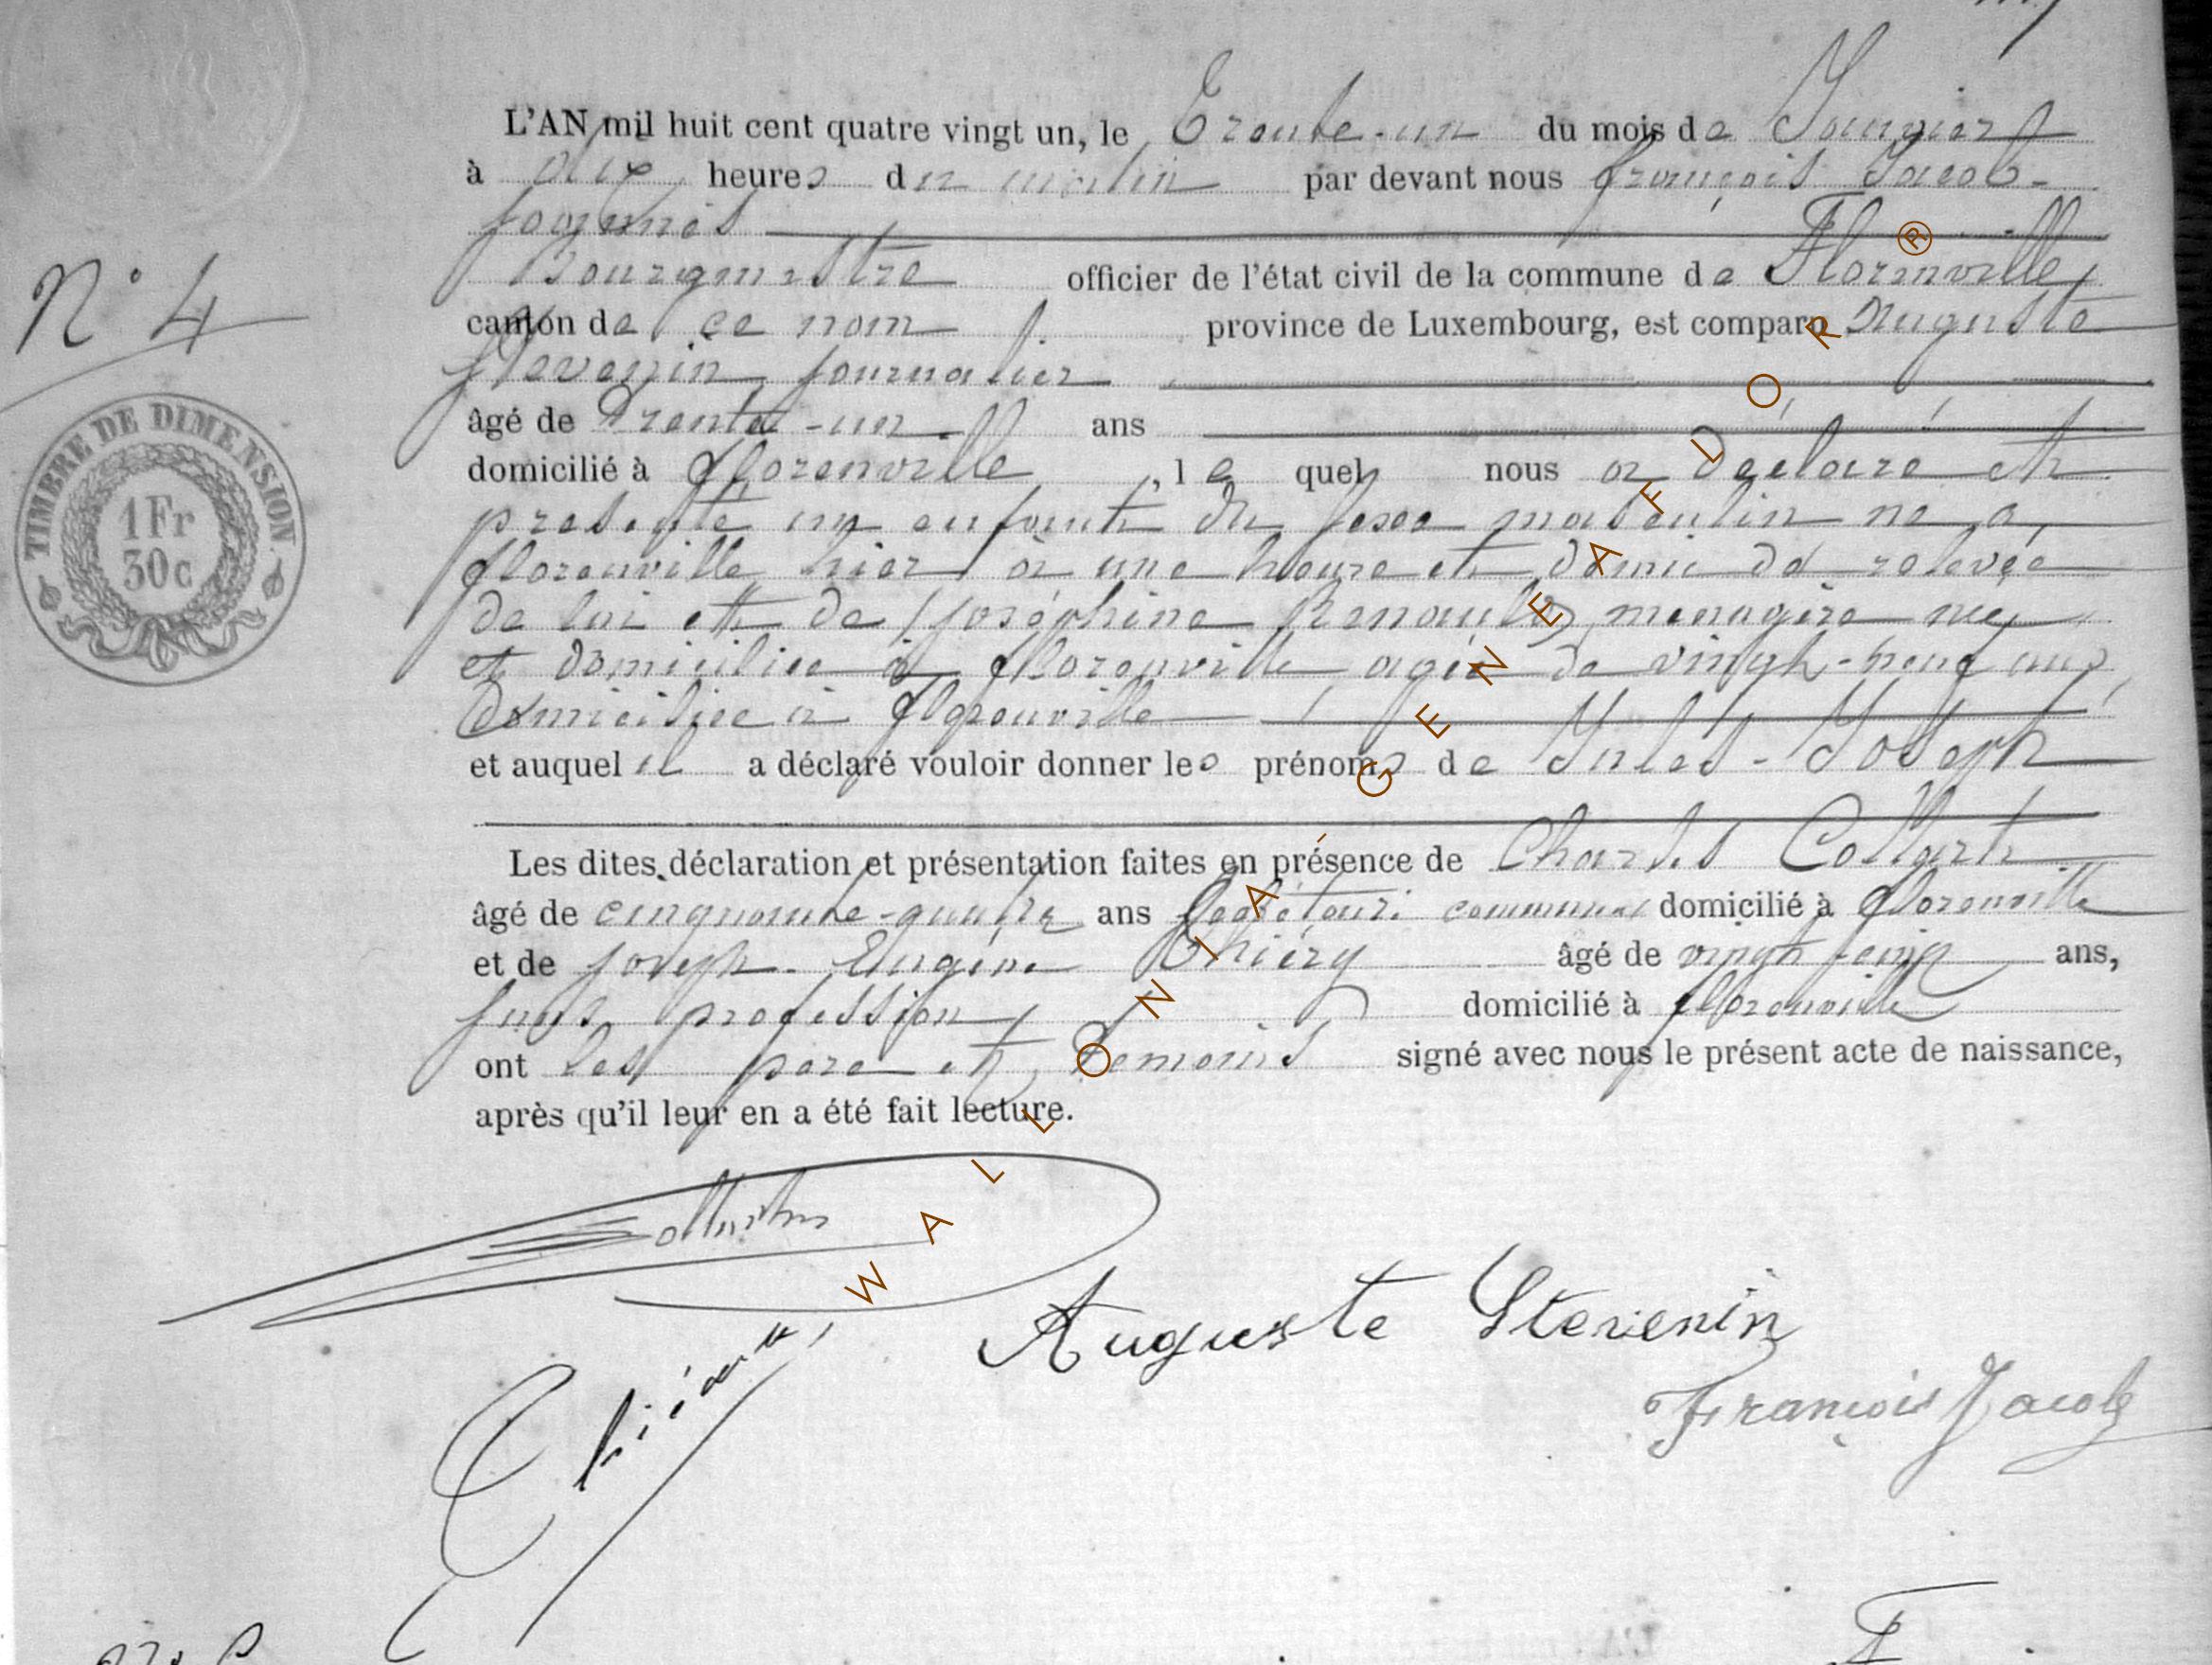 L'AN mil huit cent quatre vingt un, le Trente-un du mois de Janvier
à dix heures du matin par devant nous françois Jacob-
Bourgmestre officier de l'état civil de la commune de Florenville
canton de ce nom province de Luxembourg, est comparu Auguste
Stevenin journalier
âgé de Trente-un ans
domicilié à florenville, le quel nous a déclaré et
présenté un enfant du sexe masculin né à
florenville hier à une heure et demie de relevée
de lui et de Joséphine menagère née
et domiciliée à florenville agée de vingt-neuf ans
Domiciliée à florenville
et auquel il a déclaré vouloir donner les prénoms de Jules-Joseph
Les dites déclaration et présentation faites en présence de Charles Collart
âgé de cinquante-quatre ans communal domicilié à florenville
et de joseph-Eugène Thiéry âgé de vingt cinq ans,
sans profession domicilié à florenville
ont les père et Temoins signé avec nous le présent acte de naissance,
après qu'il leur en a été fait lecture.
N° 4
TIMBRE DE DIMENSION
1 Fr
30c
Auguste Stevenin
François Jacob
WALLONIA' GENEAFLOR®